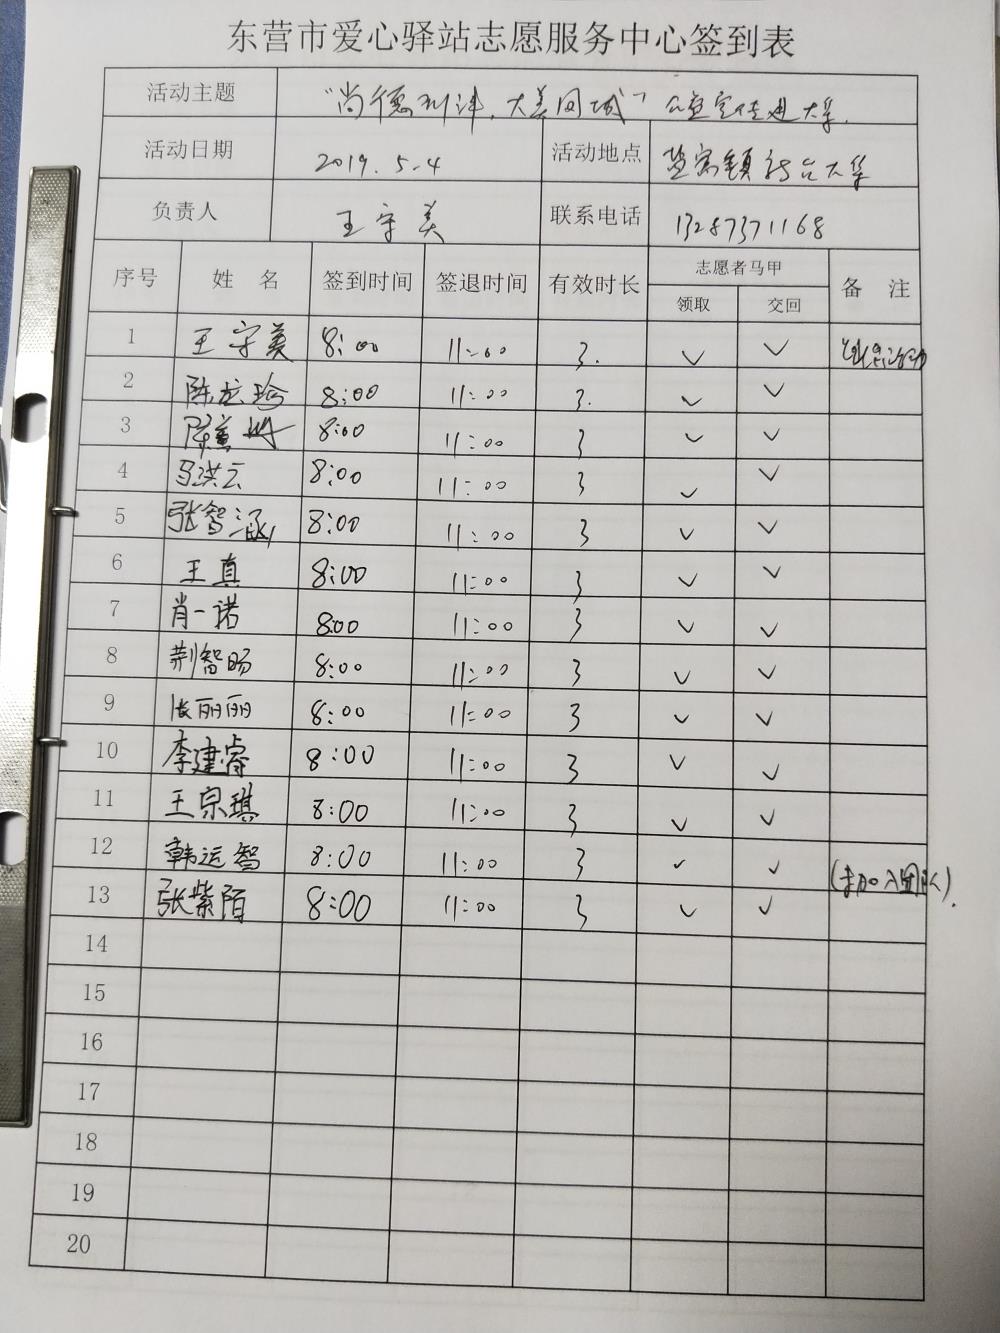 东营市爱心驿站志愿服务中心签到表
活动主题 "尚德利津，大美同城" 公益宣传进大集.
活动日期 2019.5.4 活动地点 盐窝镇 大集
负责人 王守美 联系电话 13287371168
序号 姓 名 签到时间 签退时间 有效时长 志愿者马甲 备 注
领取 交回
1 王守美 8:00 11:00 3. ✓ ✓
2 陈龙珍 8:00 11:00 3. ✓ ✓
3 陈 8:00 11:00 3 ✓ ✓
4 马洪云 8:00 11:00 3 ✓ ✓
5 张智涵 8:00 11:00 3 ✓ ✓
6 王真 8:00 11:00 3 ✓ ✓
7 肖一诺 8:00 11:00 3 ✓ ✓
8 荆智旸 8:00 11:00 3 ✓ ✓
9 张丽丽 8:00 11:00 3 ✓ ✓
10 李建睿 8:00 11:00 3 ✓ ✓
11 王宗琪 8:00 11:00 3 ✓ ✓
12 韩运智 8:00 11:00 3 ✓ ✓ (未加入团队).
13 张紫陌 8:00 11:00 3 ✓ ✓
14
15
16
17
18
19
20